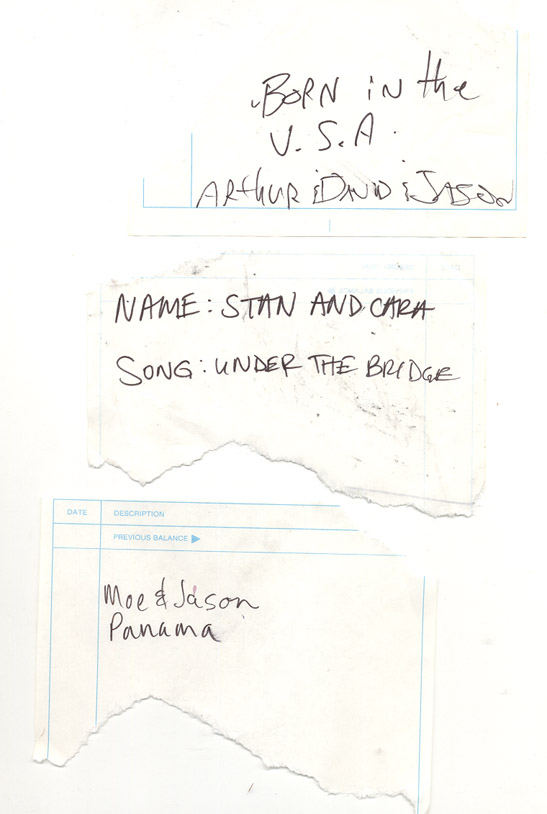 BORN iN the
U.S.A.
ARthUR & DAVID & JASON
NAME: STAN AND CARA
SONG: UNDER THE BRIDGE
DATE DESCRIPTION
PREVIOUS BALANCE ▶
Moe & Jason
Panama